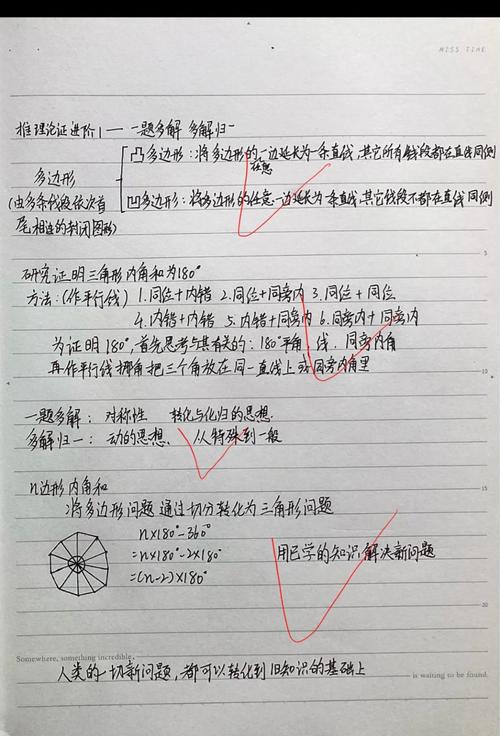 MISS TIME
推理论证进阶1——一题多解 多解归一
凸多边形:将多边形的任意一边延长为一条直线,其它所有线段都在直线同侧
多边形
(由多条线段依次首
凹多边形:将多边形的任意一边延长为一条直线,其它线段不都在直线同侧
尾相连的封闭图形)
5
研究证明三角形内角和为180°
方法:(作平行线) 1.同位+内错 2.同位+同旁内 3.同位+同位
4.内错+内错 5.内错+同旁内 6.同旁内+同旁内
为证明180°,首先思考与其有关的:180°平角、线、同旁内角
再作平行线挪角把三个角放在同一直线上或同旁内角里
10
一题多解: 对称性 转化与化归的思想
多解归一: 动的思想、 从特殊到一般
n边形内角和
15
将多边形问题通过切分转化为三角形问题
n×180°-360°
=n×180°-2×180°
用已学的知识解决新问题
=(n-2)×180°
20
Somewhere, something incredible,
人类的一切新问题,都可以转化到旧知识的基础上
is waiting to be found.